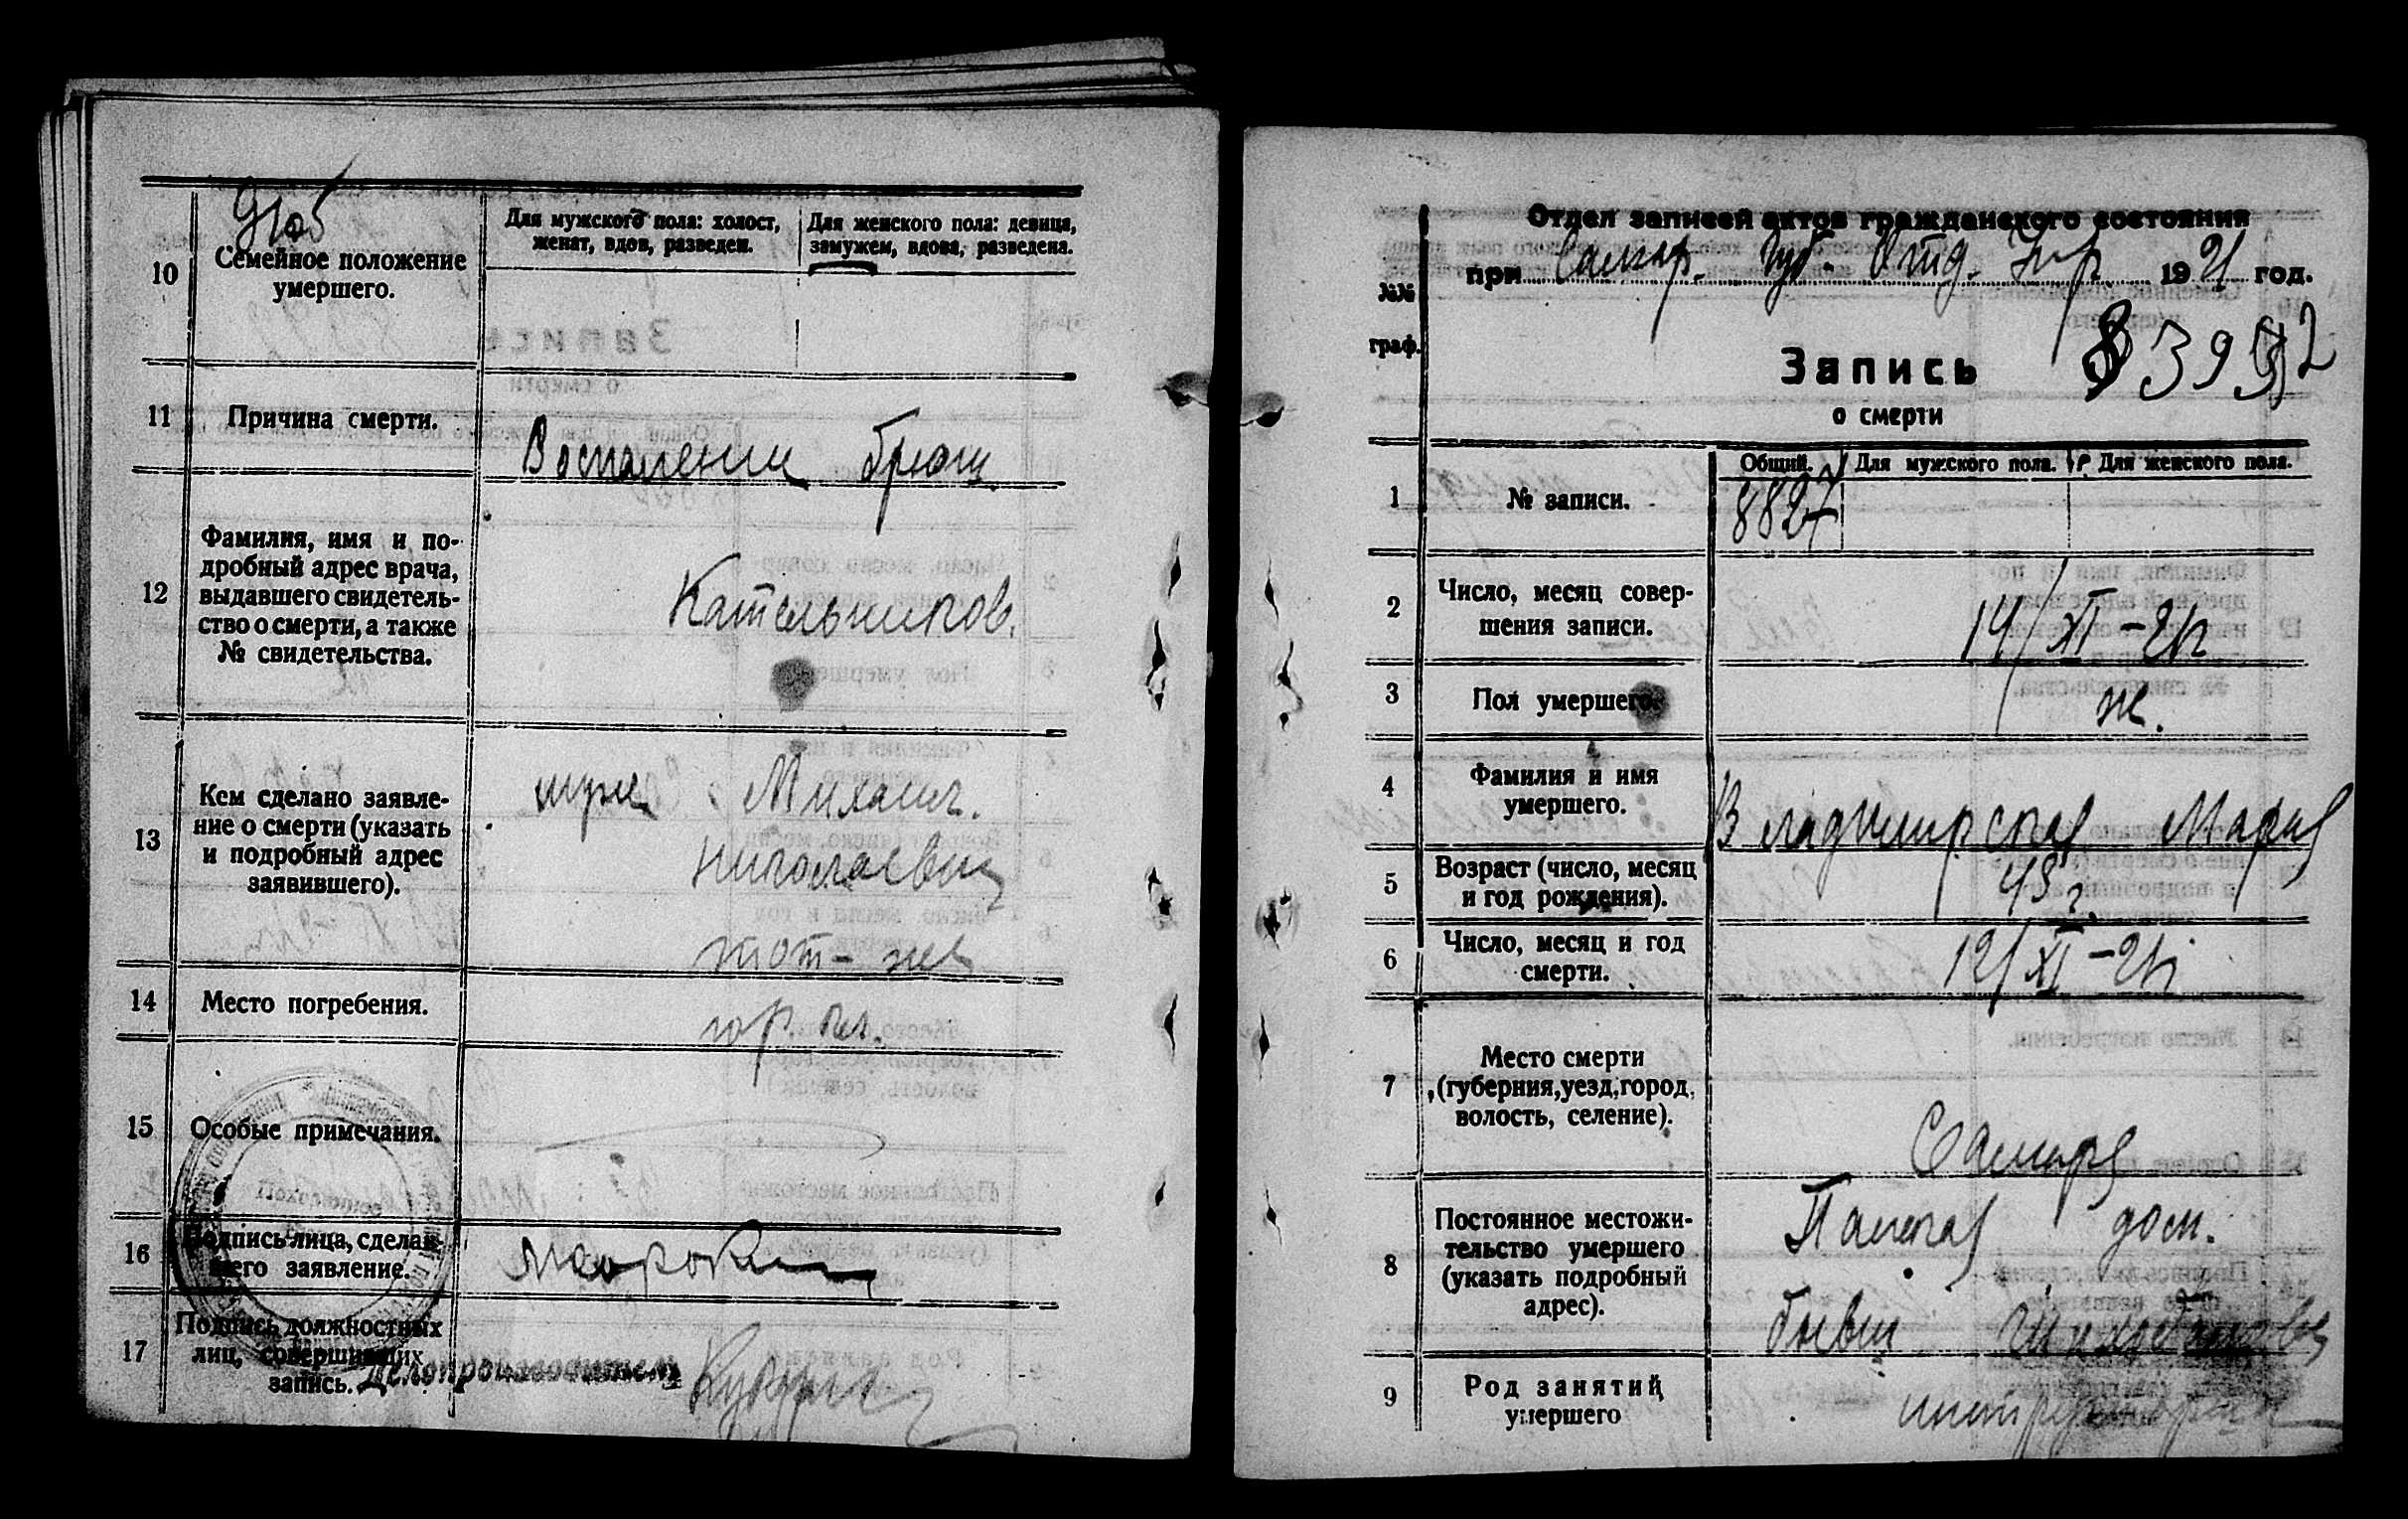 10
Семейное положение
умершего.
Для мужского пола: холост,
женат, вдов, разведен.
Для женского пола: девица,
замужем, вдова, разведена.
11
Причина смерти.
Воспаление брюш.
12
Фамилия, имя и по-
дробный адрес врача,
выдавшего свидетель-
ство о смерти, а также
№ свидетельства.
Кательников.
13
Кем сделано заявле-
ние о смерти (указать
и подробный адрес
заявившего).
муж Михаил.
Николаевич
тот-же
14
Место погребения.
гор. кл.
15
Особые примечания.
16
Подпись лица, сделав-
шего заявление.
17
Подпись должностных
лиц, совершивших
запись.
Делопроизводитель
Отдел записей актов гражданского состояния
при Самар. Губ. Отд. Упр. 1921 год.
№№
граф.
Запись
о смерти
Общий.
Для мужского пола.
Для женского пола.
1
№ записи.
8827
2
Число, месяц совер-
шения записи.
14/XI-21г
3
Пол умершего.
ж.
4
Фамилия и имя
умершего.
Владимирская Мария
5
Возраст (число, месяц
и год рождения).
43 г.
6
Число, месяц и год
смерти.
12/XI-21г
7
Место смерти
(губерния, уезд, город,
волость, селение).
Самара
8
Постоянное местожи-
тельство умершего
(указать подробный
адрес).
дом.
бывш
9
Род занятий
умершего